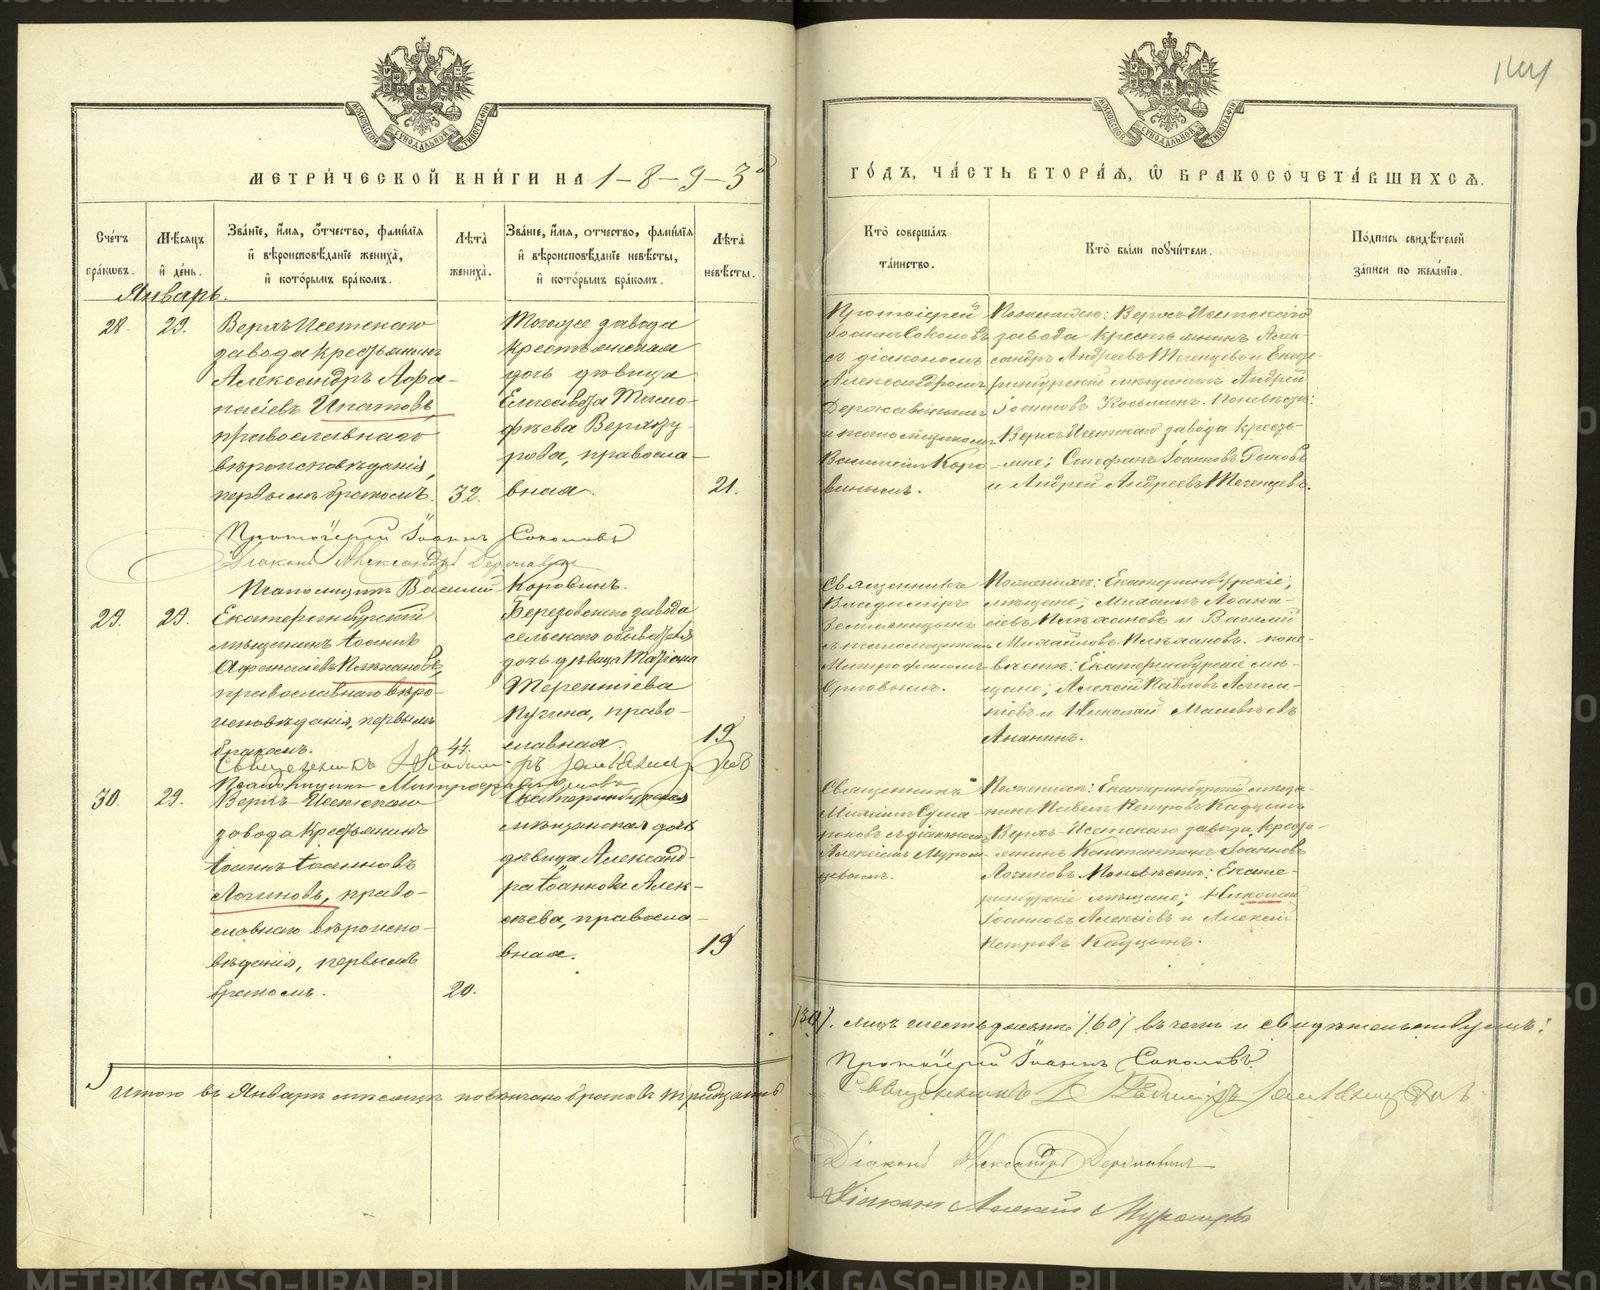 144
МЕТРИ́ЧЕСКОЙ КНИ́ГИ НА 1-8-9-3й
ГО́ДЪ, ЧА́СТЬ ВТОРА́Я, Ѽ БРАКОСОЧЕТА́ВШИХСЯ.
Сче́тъ бра́кωвъ.
Мѣ́сяцъ и҆ де́нь.
Зва́нїе, и҆́мя, ѻ҆́тчество, фами́лїя
и҆ вѣроисповѣ́данїе жениха̀,
и҆ кото́рымъ бра́комъ.
Лѣ́та жениха̀.
Зва́нїе, и҆́мя, ѻ҆́тчество, фами́лїя
и҆ вѣроисповѣ́данїе невѣ́сты,
и҆ кото́рымъ бра́комъ.
Лѣ́та невѣ́сты.
Кто̀ соверша́лъ
та́инство.
Кто̀ бы́ли поꙋчи́тели.
По́дпись свидѣ́телей
за́писи по жела́нїю.
Январь.
28.
29.
Верхъ Исетскаго
завода крестьянинъ
Александръ Афа-
насіевъ Ипатовъ,
православнаго
вѣроисповѣданія,
первымъ бракомъ.
32.
Тогоже завода
крестьянская
дочь девица
Елисавета Тимо-
фѣева
православ-
ная.
21.
Протоіерей
Іоаннъ Соколовъ
съ діакономъ
Александромъ
Державинымъ
и псаломщикомъ
Василіемъ Коро-
винымъ.
По женихѣ: Верхъ-Исетскаго
завода крестьянинъ Алек-
сандръ Андреевъ и Екате-
ринбургскій мѣщанинъ Андрей
Іоанновъ Козьминъ. По невѣстѣ:
Верхъ Исетскаго завода кресть-
яне; Стефанъ Іоанновъ
и Андрей Андреевъ
Протоіерей Іоаннъ Соколовъ
Діаконъ Александръ Державинъ
Псаломщикъ Василій Коровинъ.
29.
29.
Екатеринбургскій
мѣщанинъ Іоаннъ
Афанасіевъ Плѣхановъ,
православнаго вѣро-
исповѣданія, первымъ
бракомъ.
44.
Березовскаго завода
сельскаго обывателя
дочь дѣвица Татіана
Терентіева
право-
славная.
19
Священникъ
Владиміръ
Земляницынъ
съ псаломщикомъ
Митрофаномъ
Орловымъ.
По женихѣ: Екатеринбургскіе
мѣщане; Михаилъ Афана-
сіевъ Плѣхановъ и Василій
Михайловъ Плѣхановъ. по не-
вѣстѣ: Екатеринбургскіе мѣ-
щане; Алексѣй Павловъ
и Николай Матвѣевъ
Ананинъ.
Священникъ Владиміръ Земляницынъ
Псаломщикъ Митрофанъ Орловъ
30.
29.
Верхъ Исетскаго
завода крестьянинъ
Іоаннъ Іоанновъ
Логиновъ, право-
славнаго вѣроиспо-
вѣданія, первымъ
бракомъ.
20.
Екатеринбургская
мѣщанская дочь
дѣвица Александ-
ра Іоаннова Алек-
сѣева, правосла-
вная.
19
Священникъ
Михаилъ
съ діакономъ
Алексіемъ Муром-
цевымъ.
По женихѣ: Екатеринбургскій мѣща-
нинъ Павелъ Петровъ Кадцынъ
Верхъ-Исетскаго завода, кресть-
янинъ Константинъ Іоанновъ
Логиновъ. По невѣстѣ: Екате-
ринбургскіе мѣщане; Николай
Іоанновъ Алексѣевъ и Алексѣй
Петровъ Кадцынъ.
Итого въ Январѣ мѣсяцѣ повѣнчано браковъ тридцать
/30/. лицъ шестьдесятъ /60/ въ чемъ и свидѣтельствуемъ:
Протоіерей Іоаннъ Соколовъ
Священникъ Владиміръ Земляницынъ
Діаконъ Александръ Державинъ
Діаконъ Алексій Муромцевъ
METRIKI.GASO-URAL.RU